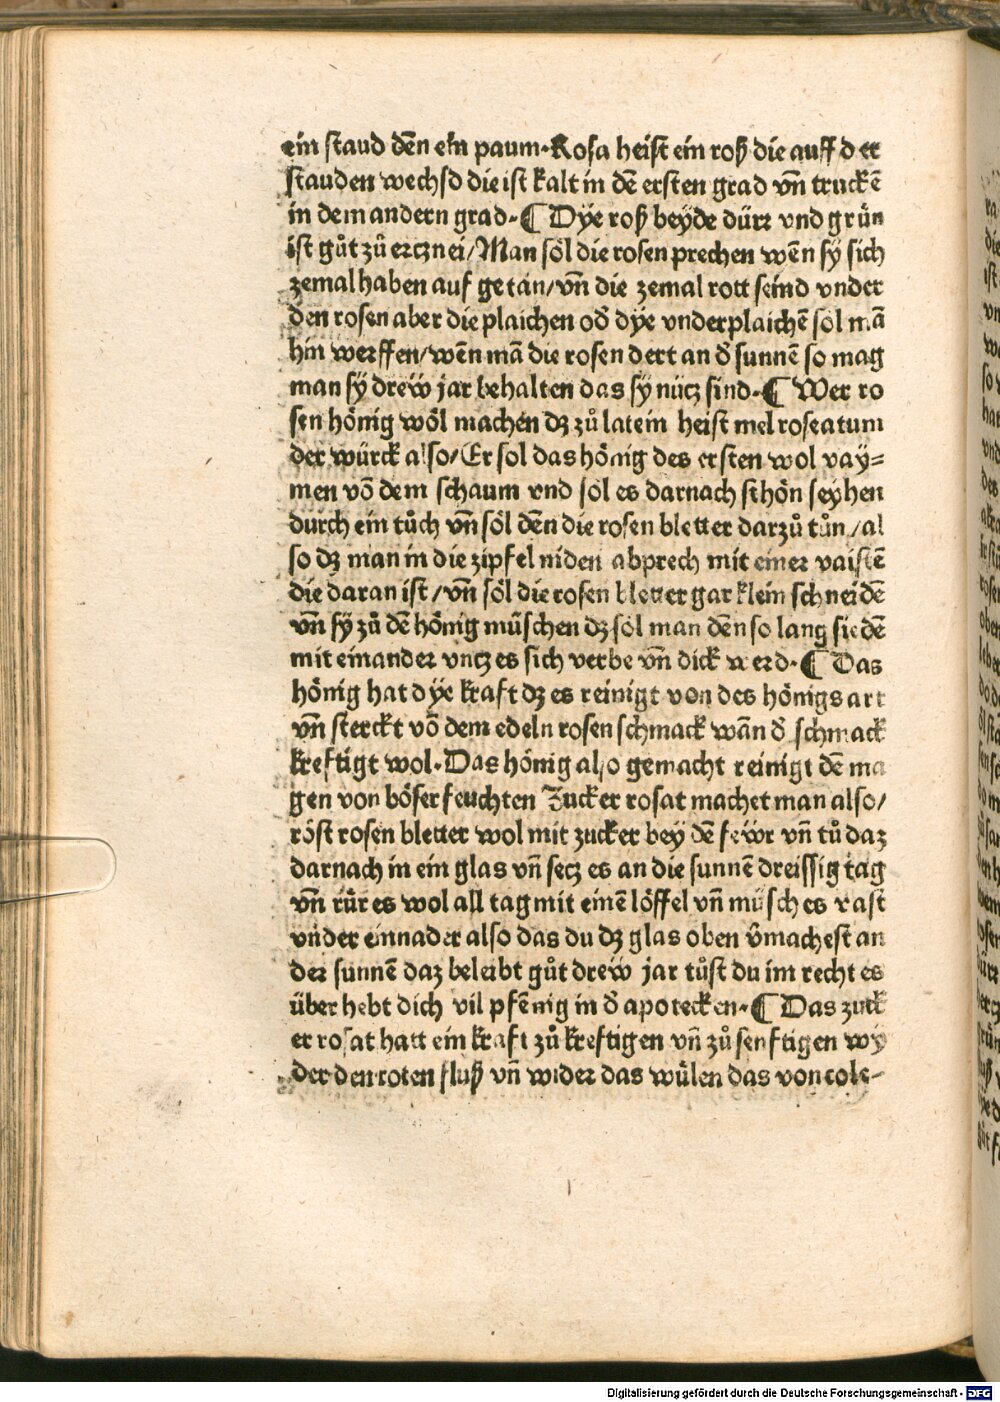 ein staud dēn ein paum·Rosa heist ein roß die auff der
stauden wechsd die ist kalt in dē ersten grad vn̄ truckē
in dem andern grad·¶ Dÿe roß beÿde dürꝛ vnd grün
ist gůt zů ercznei/Man söl die rosen prechen wēn sÿ sich
zemal haben auf getan/vn̄ die zemal rott seind vnder
den rosen aber die plaichen od̄ dÿe vnderplaichē sol mā
hin werffen/wēn mā die rosen dert an d̄ sunnē so mag
man sÿ dreẅ jar behalten das sÿ nücz sind·¶ Wer ro
sen hönig wöl machen dʒ zů latein heist mel roseatum
der würck also/Er sol das hönig des ersten wol vaÿ=
men vō dem schaum vnd söl es darnach schön seÿhen
durch ein tůch vn̄ söl dēn die rosen bletter darzů tůn/al
so dʒ man in die zipfel niden abprech mit einer vaistē
die daran ist/vn̄ söl die rosen bletter gar klein schneidē
vn̄ sÿ zů dē hönig müschen dʒ söl man dēn so lang siedē
mit einander vncz es sich verbe vn̄ dick werd·¶ Das
hönig hat dÿe kraft dʒ es reinigt von des hönigs art
vn̄ sterckt vō dem edeln rosen schmack wān d̄ schmack
kreftigt wol·Das hönig also gemacht reinigt dē ma
gen von böser feuchten Zucker rosat machet man also/
röst rosen bletter wol mit zucker beÿ dē feẅr vn̄ tů daz
darnach in ein glas vn̄ secz es an die sunnē dreissig tag
vn̄ rür es wol all tag mit einē löffel vn̄ müsch es vast
vnder einnader also das du dʒ glas oben v̄machest an
der sunnē daz beleibt gůt dreẅ jar tůst du im recht es
über hebt dich vil pfēnig in d̄ apotecken·¶ Das zuck
er rosat hatt ein kraft zů kreftigen vn̄ zů senftigen wÿ
der den roten fluß vn̄ wider das wülen das von cole-
Digitalisierung gefördert durch die Deutsche Forschungsgemeinschaft - DFG